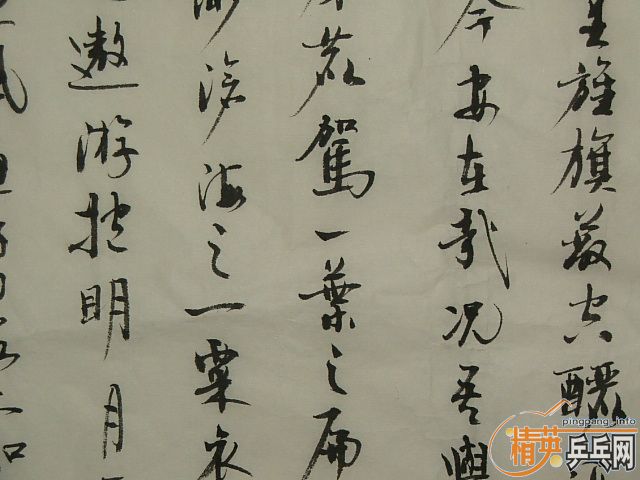 旌旗蔽空釃
今安在哉况吾與
麋駕一葉之扁
渺滄海之一粟哀
遨游抱明月
pingpang.info
精英乒乓网